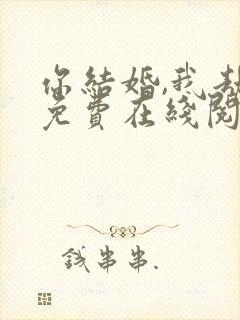 你結婚,我劫
免費在綫閱
錢串串.